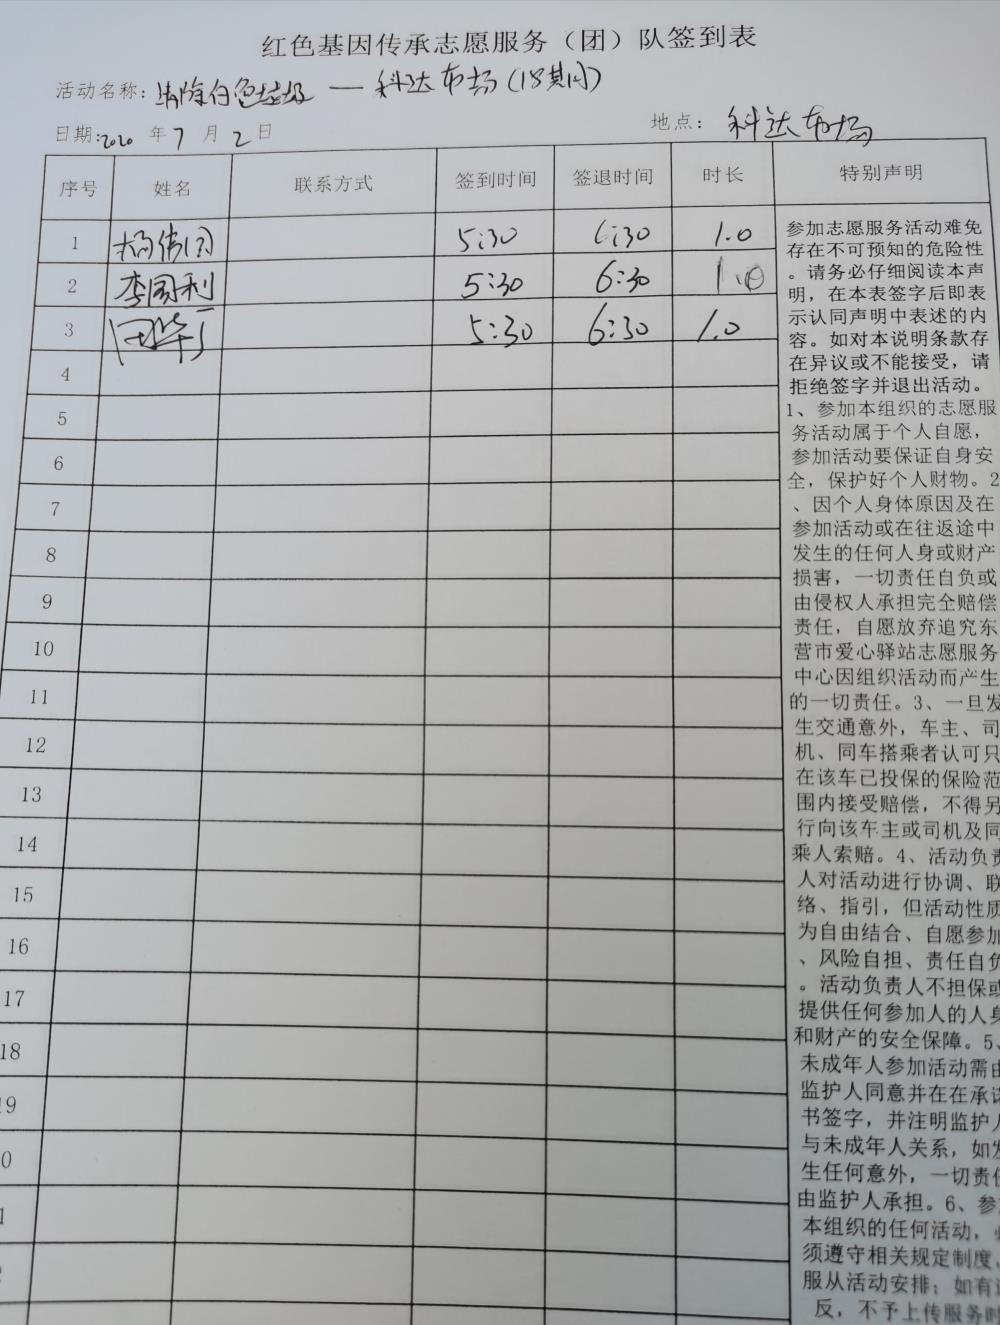 红色基因传承志愿服务（团）队签到表
活动名称：清除白色垃圾 — 科达市场（18期）
日期：2020 年 7 月 2 日 地点： 科达市场
序号 姓名 联系方式 签到时间 签退时间 时长 特别声明
1 5:30 6:30 1.0
2 李国利 5:30 6:30 1.0
3 5:30 6:30 1.0
4
5
6
7
8
9
10
11
12
13
14
15
16
17
18
19
0
1
2
参加志愿服务活动难免
存在不可预知的危险性
。请务必仔细阅读本声
明，在本表签字后即表
示认同声明中表述的内
容。如对本说明条款存
在异议或不能接受，请
拒绝签字并退出活动。
1、参加本组织的志愿服
务活动属于个人自愿，
参加活动要保证自身安
全，保护好个人财物。2
、因个人身体原因及在
参加活动或在往返途中
发生的任何人身或财产
损害，一切责任自负或
由侵权人承担完全赔偿
责任，自愿放弃追究东
营市爱心驿站志愿服务
中心因组织活动而产生
的一切责任。3、一旦发
生交通意外，车主、司
机、同车搭乘者认可只
在该车已投保的保险范
围内接受赔偿，不得另
行向该车主或司机及同
乘人索赔。4、活动负责
人对活动进行协调、联
络、指引，但活动性质
为自由结合、自愿参加
、风险自担、责任自负
。活动负责人不担保或
提供任何参加人的人身
和财产的安全保障。5、
未成年人参加活动需由
监护人同意并在在承诺
书签字，并注明监护人
与未成年人关系，如发
生任何意外，一切责任
由监护人承担。6、参
本组织的任何活动，必
须遵守相关规定制度、
服从活动安排；如有违
反，不予上传服务时